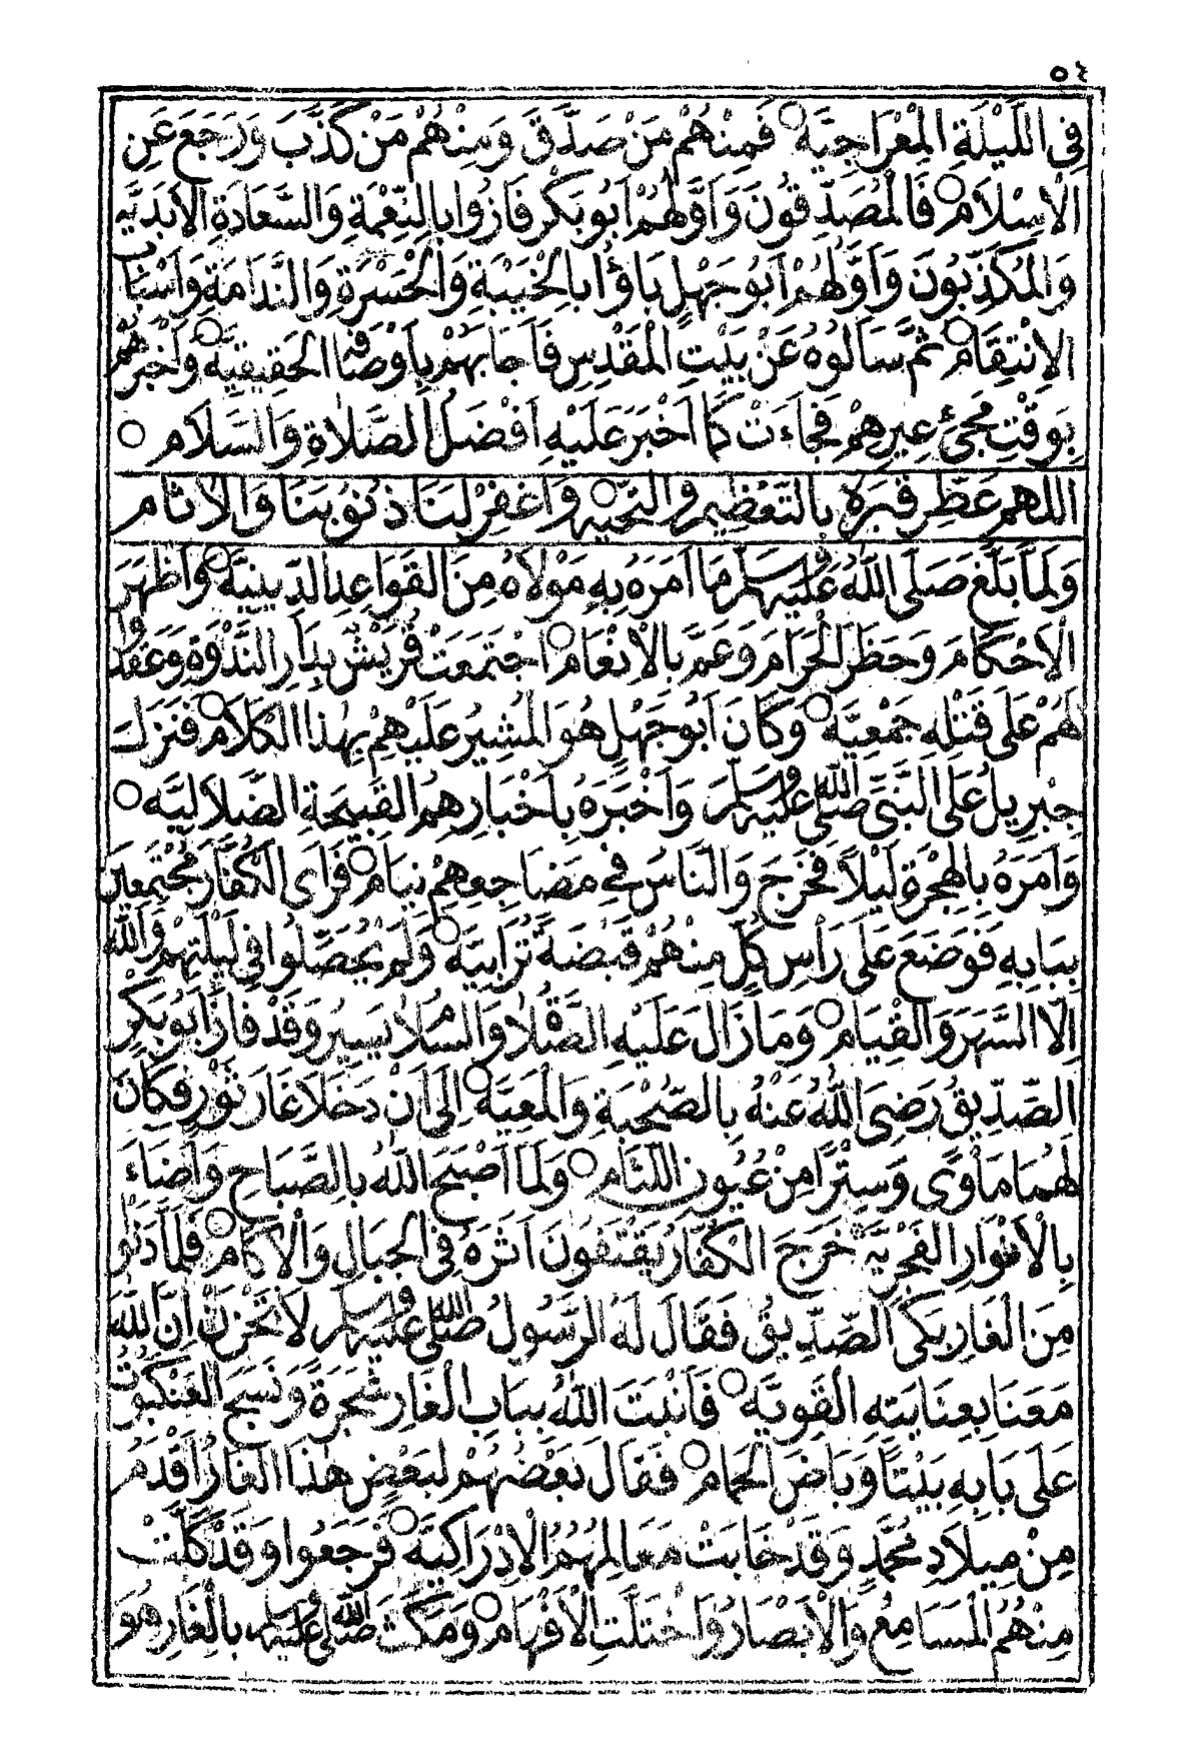 ٥٤
فِى اللَّيْلَةِ الْمِعْرَاجِيَّةِ ○ فَمِنْهُمْ مَنْ صَدَّقَ وَمِنْهُمْ مَنْ كَذَّبَ وَرَجَعَ عَنِ
الْاِسْلَامِ ○ فَالْمُصَدِّقُونَ وَاَوَّلُهُمْ اَبُو بَكْرٍ فَازُوا بِالنِّعْمَةِ وَالسَّعَادَةِ الْاَبَدِيَّةِ
وَالْمُكَذِّبُونَ وَاَوَّلُهُمْ اَبُو جَهْلٍ بَاؤُا بِالْخَيْبَةِ وَالْحَسْرَةِ وَالنَّدَامَةِ وَاَسْبَابِ
الْاِنْتِقَامِ ○ ثُمَّ سَاَلُوهُ عَنْ بَيْتِ الْمَقْدِسِ فَاَجَابَهُمْ بِاَوْصَافِهَا الْحَقِيقِيَّةِ ○ وَاَخْبَرَهُمْ
بِوَقْتِ مَجِئِ عِيرِهِمْ فَجَاءَتْ كَمَا اَخْبَرَ عَلَيْهِ اَفْضَلُ الصَّلَاةِ وَالسَّلَامِ ○
اللهم عَطِّرْ قَبْرَهُ بِالتَّعْظِيمِ وَالتَّحِيَّةِ ○ وَاغْفِرْ لَنَا ذُنُوبَنَا وَالْاٰثَام
وَلَمَّا بَلَّغَ صَلَّى اللهُ عَلَيْهِ وَسَلَّمَ مَا اَمَرَهُ بِهِ مَوْلَاهُ مِنَ الْقَوَاعِدِ الدِّينِيَّةِ ○ وَاَظْهَرَ
الْاَحْكَامَ وَحَظَرَ الْحَرَامَ وَعَمَّ بِالْاِنْعَامِ ○ اجْتَمَعَتْ قُرَيْشٌ بِدَارِ النَّدْوَةِ وَعَقَدُوا
لَهُمْ عَلَى قَتْلِهِ جَمْعِيَّة ○ وَكَانَ اَبُو جَهْلٍ هُوَ الْمُشِيرُ عَلَيْهِمْ بِهٰذَا الْكَلَامِ ○ فَنَزَلَ
جِبْرِيلُ عَلَى النَّبِيِّ صَلَّى اللهُ عَلَيْهِ وَسَلَّمَ وَاَخْبَرَهُ بِاَخْبَارِهِمِ الْقَبِيحَةِ الضَّلَالِيَّة ○
وَاَمَرَهُ بِالْهِجْرَةِ لَيْلًا فَخَرَجَ وَالنَّاسُ فِى مَضَاجِعِهِمْ نِيَام ○ فَرَاَى الْكُفَّارَ مُجْتَمِعِينَ
بِبَابِهِ فَوَضَعَ عَلَى رَأْسِ كُلٍّ مِنْهُمْ قَبْضَةً تُرَابِيَّة ○ وَلَمْ يُحَصِّلُوا فِى لَيْلَتِهِمْ وَاللهِ
اِلَّا السَّهَرَ وَالْقِيَام ○ وَمَا زَالَ عَلَيْهِ الصَّلَاةُ وَالسَّلَامُ يَسِيرُ وَقَدْ فَازَ اَبُو بَكْرٍ
الصِّدِّيقُ رَضِىَ اللهُ عَنْهُ بِالصُّحْبَةِ وَالْمَعِيَّة ○ اِلَى اَنْ دَخَلَا غَارَ ثَوْرٍ فَكَانَ
لَهُمَا مَأْوًى وَسِتْرًا مِنْ عُيُونِ اللِّئَام ○ وَلَمَّا اَصْبَحَ اللهُ بِالصَّبَاحِ وَاَضَاءَ
بِالْاَنْوَارِ الْفَجْرِيَّة خَرَجَ الْكُفَّارُ يَقْتَفُونَ اَثَرَهُ فِى الْجِبَالِ وَالْاٰكَام ○ فَلَمَّا دَنَوْا
مِنَ الْغَارِ بَكَى الصِّدِّيقُ فَقَالَ لَهُ الرَّسُولُ صَلَّى اللهُ عَلَيْهِ وَسَلَّمَ لَا تَحْزَنْ اِنَّ اللهَ
مَعَنَا بِعِنَايَتِهِ الْقَوِيَّة ○ فَاَنْبَتَ اللهُ بِبَابِ الْغَارِ شَجَرَةً وَنَسَجَ الْعَنْكَبُوتُ
عَلَى بَابِهِ بَيْتًا وَبَاضَ الْحَمَام ○ فَقَالَ بَعْضُهُمْ لِبَعْضٍ هٰذَا الْغَارُ اَقْدَمُ
مِنْ مِيلَادِ مُحَمَّدٍ وَقَدْ خَابَتْ مَعَالِمُهُمُ الْاِدْرَاكِيَّة ○ فَرَجَعُوا وَقَدْ كَلَّتْ
مِنْهُمُ الْمَسَامِعُ وَالْاَبْصَارُ وَاخْتَلَّتِ الْاَفْهَام ○ وَمَكَثَ صَلَّى اللهُ عَلَيْهِ وَسَلَّمَ بِالْغَارِ هُوَ